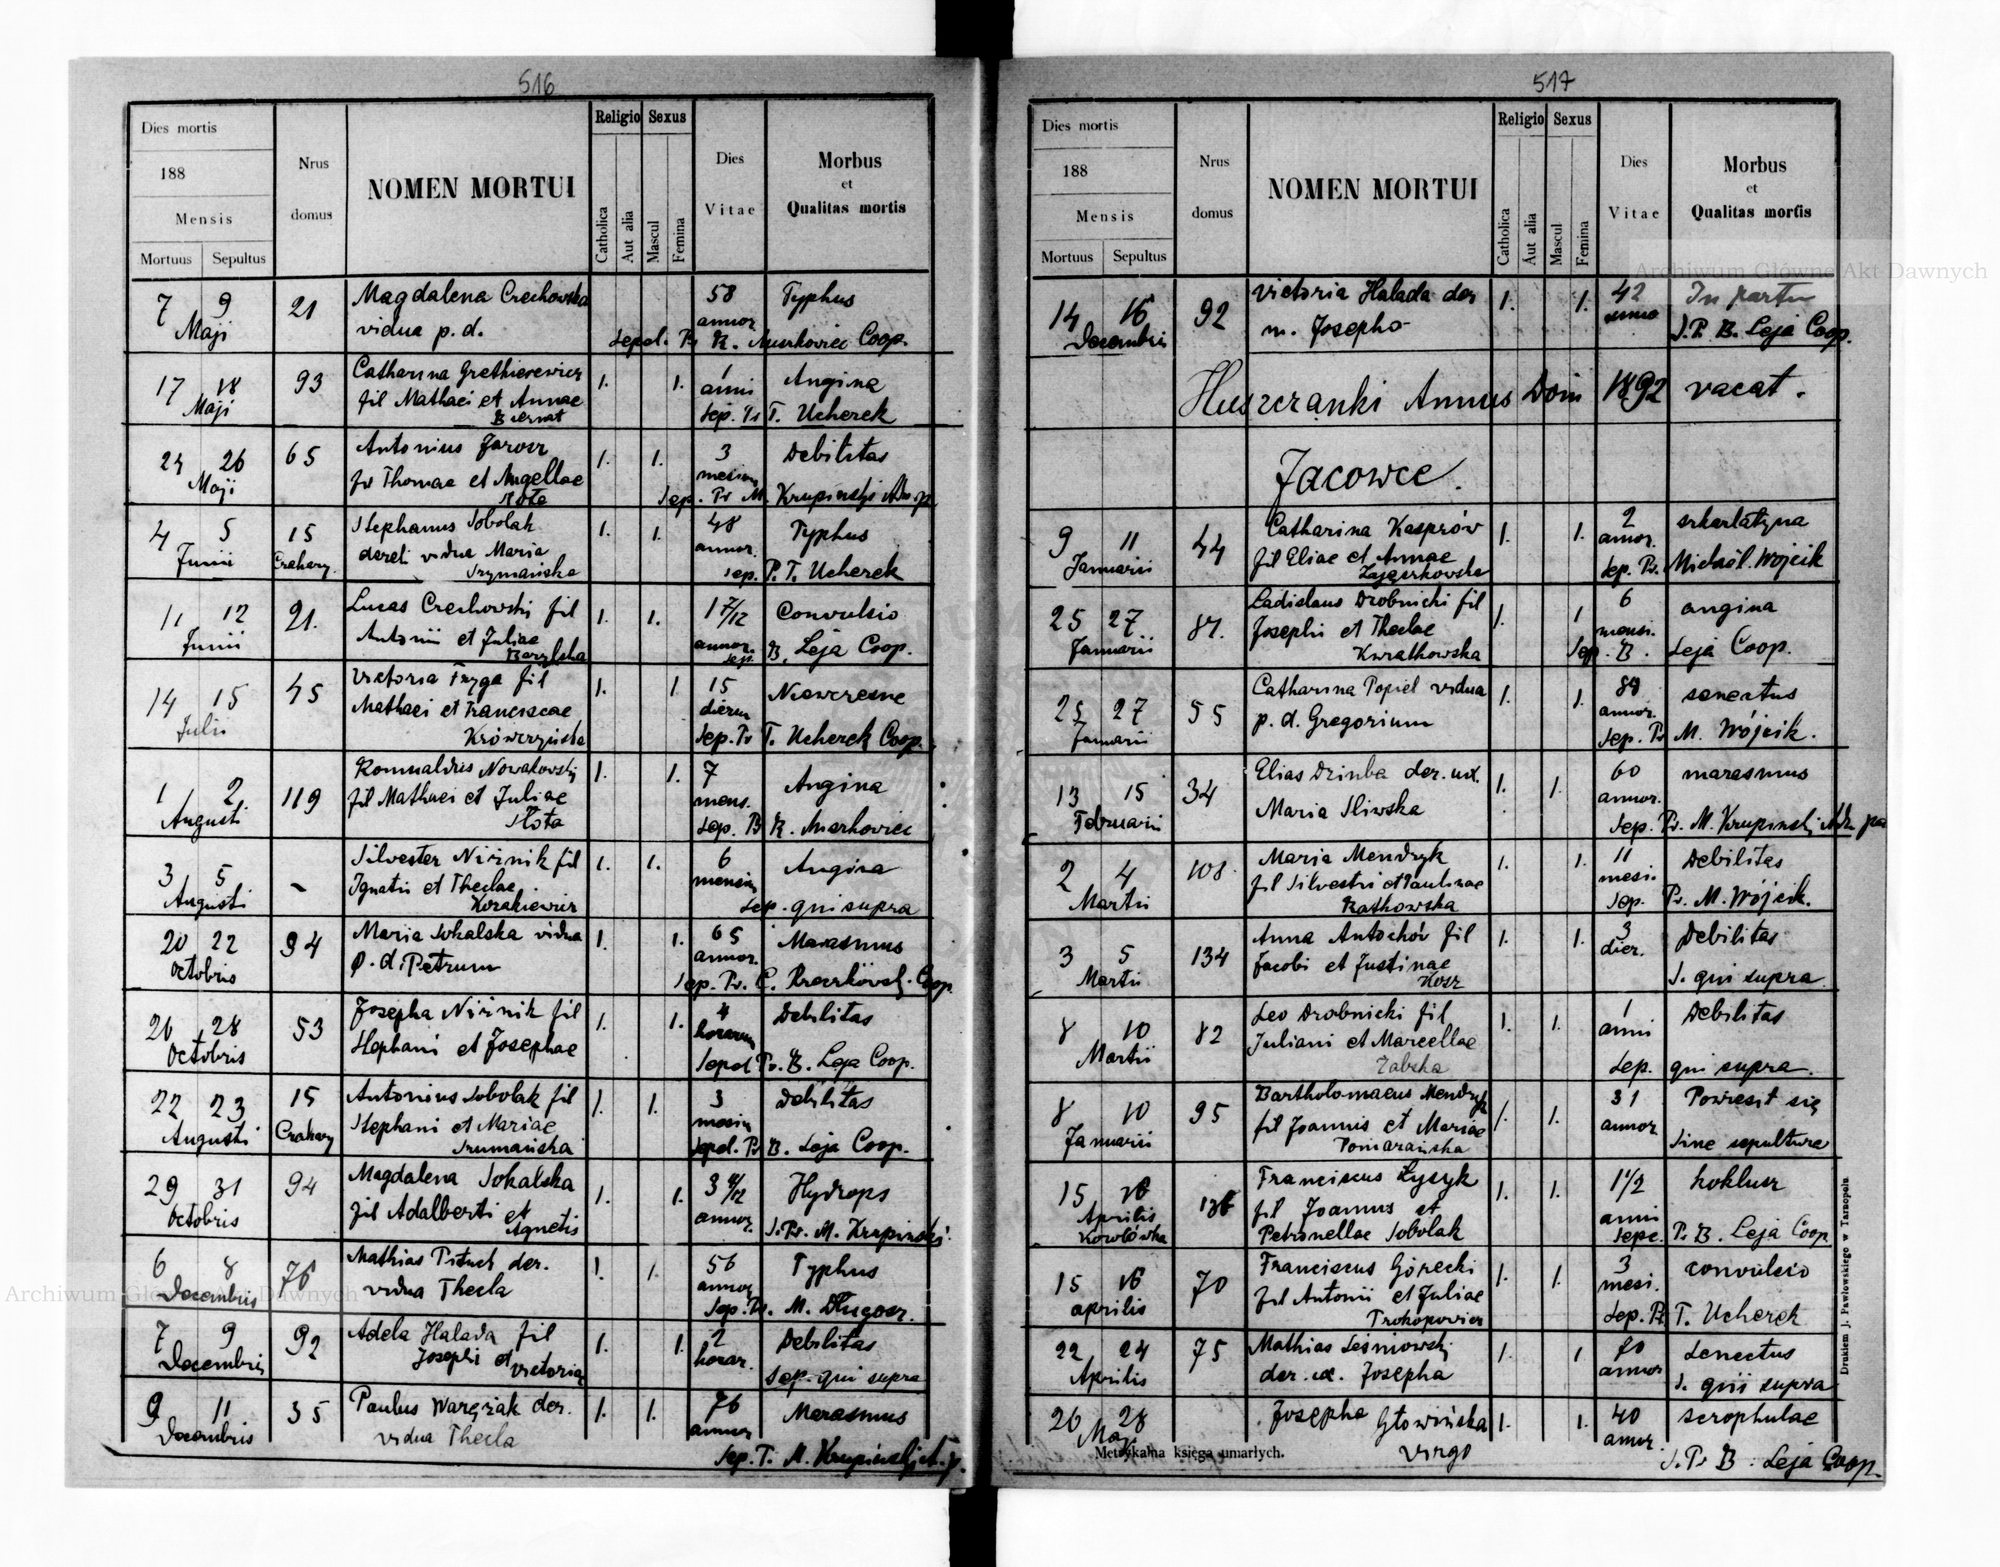 516
Dies mortis
188
Mensis
Mortuus Sepultus
Nrus
domus
NOMEN MORTUI
Religio
Catholica
Aut alia
Sexus
Mascul
Femina
Dies
Vitae
Morbus
et
Qualitas mortis
7 9 21 Magdalena Czechowska 58 Typhus
Maji vidua p. d. annor.
Sepel. Coop.
17 18 93 Catharina 1. 1. 1 Angina
Maji fil Mathaei et Annae anni
Biernat Sep. Pr T. Ucherek
26 65 Antonius Jarosz 1. 1. 3 Debilitas
Maji fil Thomae et Angellae
Słota Sep. Pr M. Krupinski
4 5 15 Stephanus Sobolak 1. 1. 48 Typhus
Junii derel. vidua Maria annor.
sep. P. T. Ucherek
11 12 21. Lucas Czechowski fil 1. 1. 1 7/12 Convulsio
Junii Antonii et Juliae annor.
sep. B. Leja Coop.
14 15 45 Victoria Fryga fil 1. 1 15 Niewczesne
Julii Mathaei et Franciscae dierum
Sep. Pr T. Ucherek Coop.
1 2 119 Romualdus Nowakowski 1. 1. 7 Angina
Augusti fil Mathaei et Juliae mens.
Słota Sep.
3 5 Silvester Niżnik fil 1. 1. 6 Angina
Augusti Ignatii et Theclae mensium
Kozakiewicz sep. qui supra
20 22 94 Maria Sokalska vidua 1. 1. 65 Marasmus
Octobris p. d. Petrum annor.
Sep. Pr. Coop.
26 28 53 Josepha Niżnik fil 1. 1. 4 Debilitas
Octobris Stephani et Josephae horarum
Sepel Pr. B. Leja Coop.
22 23 15 Antonius Sobolak fil 1. 1. 3 Debilitas
Augusti Stephani et Mariae
Szumańska Sepel. Pr B. Leja Coop.
29 31 94 Magdalena Sokalska 1. 1. 3 Hydrops
Octobris fil Adalberti et annor.
Agnetis S. Pr. M. Krupinski
6 8 76 Mathias Pituch der. 1. 1. 56 Typhus
Decembris vidua Thecla annor
Sep. Pr. M. Długosz.
7 9 92 Adela Halada fil 1. 1. 2 Debilitas
Decembris Josephi et Victoria horar.
Sep. qui supra
9 11 35 Paulus der. 1. 1. 76 Marasmus
Decembris vidua Thecla annor
Sep. M. Krupinski
517
Dies mortis
188
Mensis
Mortuus Sepultus
Nrus
domus
NOMEN MORTUI
Religio
Catholica
Aut alia
Sexus
Mascul
Femina
Dies
Vitae
Morbus
et
Qualitas mortis
14 16 92 Victoria Halada der 1. 1. 42 In partu
Decembris m. Josepho S. P. B. Leja Coop.
Huszczanki Annus Dom 1892 vacat.
Jacowce.
9 11 44 Catharina Kasprów 1. 1. 2 szkarlatyna
Januarii fil Eliae et Annae annor.
Zajączkowska Sep. Pr. Michaël Wojcik
25 27 Ladislaus Drobnicki fil 1. 1 6 angina
Januarii Josephi et Theclae mensi.
Kwiatkowska Sep. B. Leja Coop.
25 27 55 Catharina Popiel vidua 1. 1. senectus
Januarii p. d. Gregorium annor.
Sep. Pr M. Wójcik.
13 15 34 Elias der. ux. 1. 1. 60 marasmus
Februarii Maria Sliwska annor.
Sep. Pr. M. Krupinski
2 4 108 Maria Mendzyk 1. 1. 11 Debilitas
Martii fil Silvestri et Paulinae mesi.
Sep. Pr. M. Wójcik.
3 5 134 Anna Antochów fil 1. 1. 3 Debilitas
Martii Jacobi et Justinae dier.
S. qui supra
8 10 82 Leo Drobnicki fil 1. 1. 1 Debilitas
Martii Juliani et Marcellae anni
Zabska Sep. qui supra.
8 10 95 Bartholomaeus Mendzyk 1. 1. 31 Powiesił się
Januarii fil Joannis et Mariae annor
Pomarańska Sine sepultura
15 16 136 Franciscus Łyszyk 1. 1. 1 1/2 koklusz
Aprilis fil Joannis et anni
Petronellae Sobolak P. B. Leja Coop
15 16 70 Franciscus Górecki 1. 1. 3 convulsio
aprilis fil Antonii et Juliae mesi.
Prokopowicz Sep. Pr T. Ucherek
22 24 75 Mathias Leśniowski 1. 1 70 Senectus
Aprilis der. ux. Josepha annor
S. qui supra
26 28 Josepha Głowińska 1. 1. 40 scrophulae
Maji virgo annor.
S. Pr B. Leja Coop.
Metrykalna księga umarłych.
Drukiem J. Pawłowskiego w Tarnopolu
Archiwum Główne Akt Dawnych
Archiwum Główne Akt Dawnych